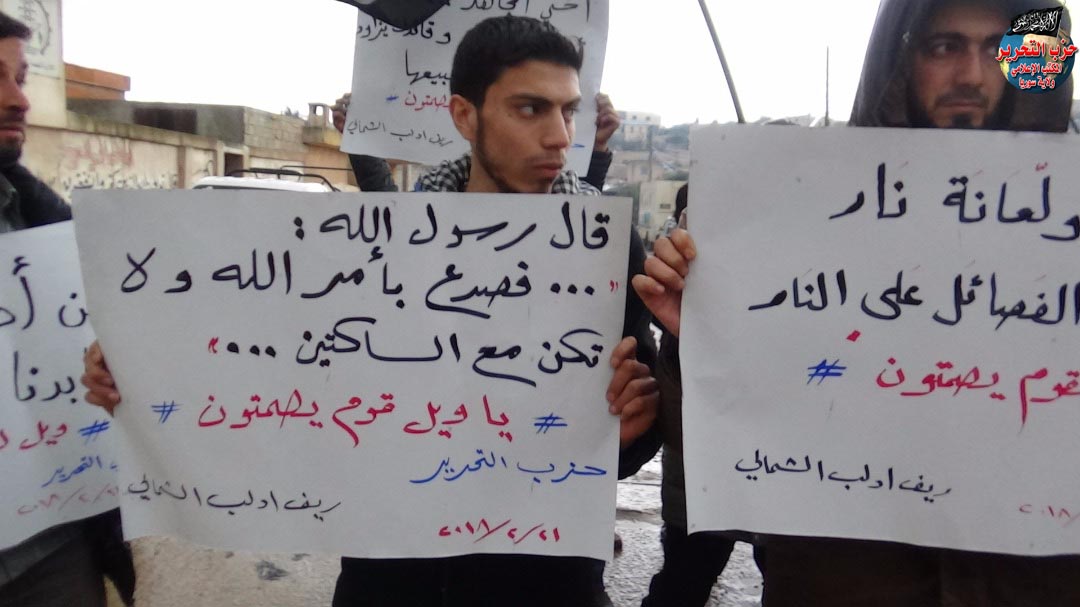 حزب التحرير
المكتب الإعلامي
ولاية سوريا
أخي المجاهد
وقائدك يزاود
بيعها
#
يصمتون
ريف ادلب الشمالي
قال رسول الله :
"... فصدع بأمر الله ولا
تكن مع الساكتين ..."
# يا ويل قوم يصمتون #
حزب التحرير
ريف ادلب الشمالي
٢٠١٨/٢/٢١
ولّعانَة نَار
الفَصائل عَلى النار
قوم يصمتون #
ريف ادلب الشمالي
٢٠١٨/
بدنا
# ويل
التحرير
٢٠١٨/٢/٢١